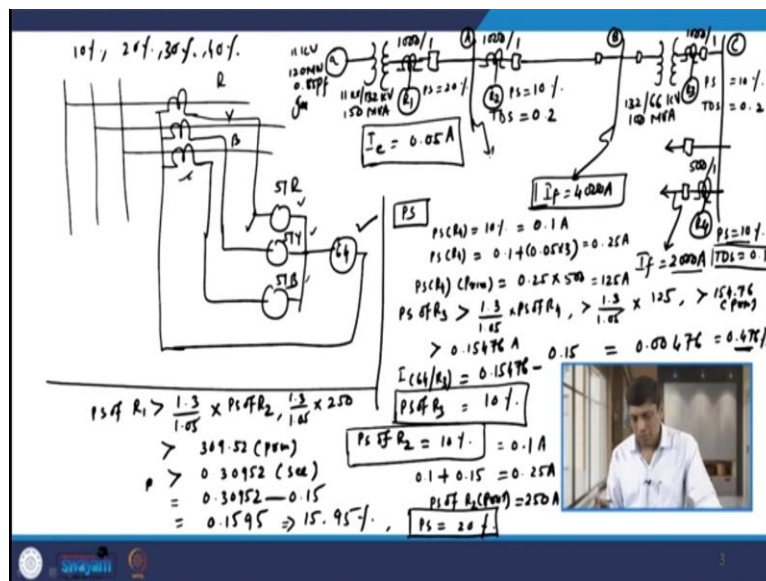 10%, 20%, 30%, 40%.
R
Y
B
51R
51Y
51B
64
11kV
120MW
0.85pf
G
11kV/132kV
150 MVA
1000/1
R1
PS=20%
A
1000/1
R2
PS=10%
TDS=0.2
B
132/66kV
100MVA
1000/1
R3
C
PS=10%
TDS=0.2
500/1
R4
PS=10%
TDS=0.1
Ie = 0.05A
If = 4000A
If = 2000A
PS
PS(R4) = 10% = 0.1A
PS(R4) = 0.1+(0.05x3) = 0.25A
PS(R4)(Prim) = 0.25 x 500 = 125A
PS of R3 > 1.3/1.05 x PS of R4, > 1.3/1.05 x 125, > 154.76 (Prim)
> 0.15476 A
I(64/R3) = 0.15476 - 0.15 = 0.00476 = 0.476%
PS of R3 = 10%.
PS of R2 = 10%. = 0.1A
0.1 + 0.15 = 0.25A
PS of R2(Prim) = 250A
PS of R1 > 1.3/1.05 x PS of R2, 1.3/1.05 x 250
> 309.52 (Prim)
> 0.30952 (sec)
= 0.30952 - 0.15
= 0.1595 ⇒ 15.95%, PS = 20%.
swayam
3